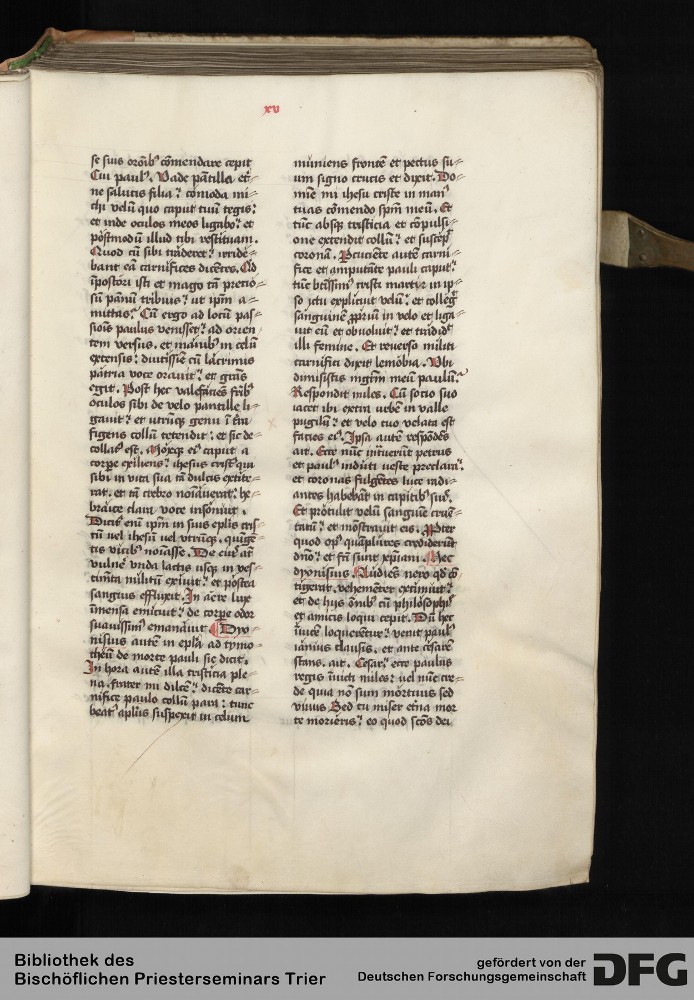 xv
se suis orōib⁹ cōmendare cepit
Cui paul⁹. Vade pātilla et⸗
ne salutis filia? cōmoda mi⸗
chi velū quo caput tuū tegis?
et inde oculos meos ligabo? et
pōstmodū illud tibi restituam.
Quod cū sibi traderet? irride⸗
bant eā carnifices dicētes. Qd
īpostori isti et mago tā precio⸗
sū pānū tribuis? ut ipm̄ a⸗
mittas? Cū ergo ad locū pas⸗
siōis paulus venisset? ad orien
tem versus. et manib⁹ in celū
extensis? diutissiē cū lacrimis
patria voce orauit? et gras̄
egit. Post hec valefaciēs frīb⁹
oculos sibi de velo pantille li⸗
gauit? et utrūqꝫ genu ī t̄rā
figens collū tetendit? et sic de⸗
collat⁹ est. Moxqꝫ ei⁹ caput a
corpe exiliens? ihesus crist⁹ qui
sibi in vita sua tā dulcis extite⸗
rat. et tā crebro noīauerat? he⸗
braice clara voce insonuit.
Dicit⁹ enī ipm̄ in suis eplis cris
tū vel ihesū vel vtrūqꝫ. quīge
tis vicib⁹ noīasse. De cui⁹ at̄
vulnē vnda lactis usqꝫ in ves⸗
timēta militū exiuit? et postea
sanguis effluxit. In aere lux
īmensa emicuit? de corpe odor
suauissim⁹ emanauit Dyo⸗
nisius autē in epla ad tymo⸗
theū de morte pauli sic dicit.
In hora autē illa tristicia ple⸗
na. frater mi dilcē? dicēte car⸗
nifice paulo collū para? tunc
beat⁹ aplus suspexit in celum
muniens frontē et pectus su⸗
um signo crucis et dixit. Do⸗
mīe mi ihesu criste in man⁹
tuas cōmendo spm̄ meū. Et
tūc absqꝫ tristicia et cōpulsi⸗
one extendit collū? et suscep̄
coronā. Percuciēte autē carni⸗
fice et amputāte pauli caput?
tūc btīssim⁹ cristi martyr in ip⸗
so ictu explicuit velū? et colleḡ
sanguinē ppriū in velo et liga
uit eū et obuoluit? et tradid̄
illi femine. Et reuerso militi
carnifici dixit lemobia. Vbi
dimisistis mgrm̄ meū paulū?
Respondit miles. Cū socio suo
iacet ibi extra urbē in valle
pugilū? et velo tuo velata est
facies ei⁹. Ipsa autē respōdēs
ait. Ecce nūc intrauerūt petrus
et paul⁹ induti ueste preclara?
et coronas fulgētes luce radi⸗
antes habebāt in capitib⁹ suis.
Et protulit velū sanguīe cruē⸗
tatū? et mōstrauit eis. Propter
quod op⁹ quāplures crediderūt
dn̄o? et fc̄i sunt xpiani. Hec
dyonisius Audiēs nero qd̄ cō
tigerat. vehemēter extimuit?
et de hijs ōnib⁹ cū philosophis
et amicis loqui cepit. Dū hec
īuicē loquerētur? venit paul⁹
ianuis clausis. et ante cesarē
stans. ait. Cesar? ecce paulus
regis īuicti miles? uel nūc cre⸗
de quia nō sum mortuus sed
viuus Sed tu miser etna mor
te morieris? eo quod scōs dei
Bibliothek des
Bischöflichen Priesterseminars Trier
gefördert von der
Deutschen Forschungsgemeinschaft
DFG